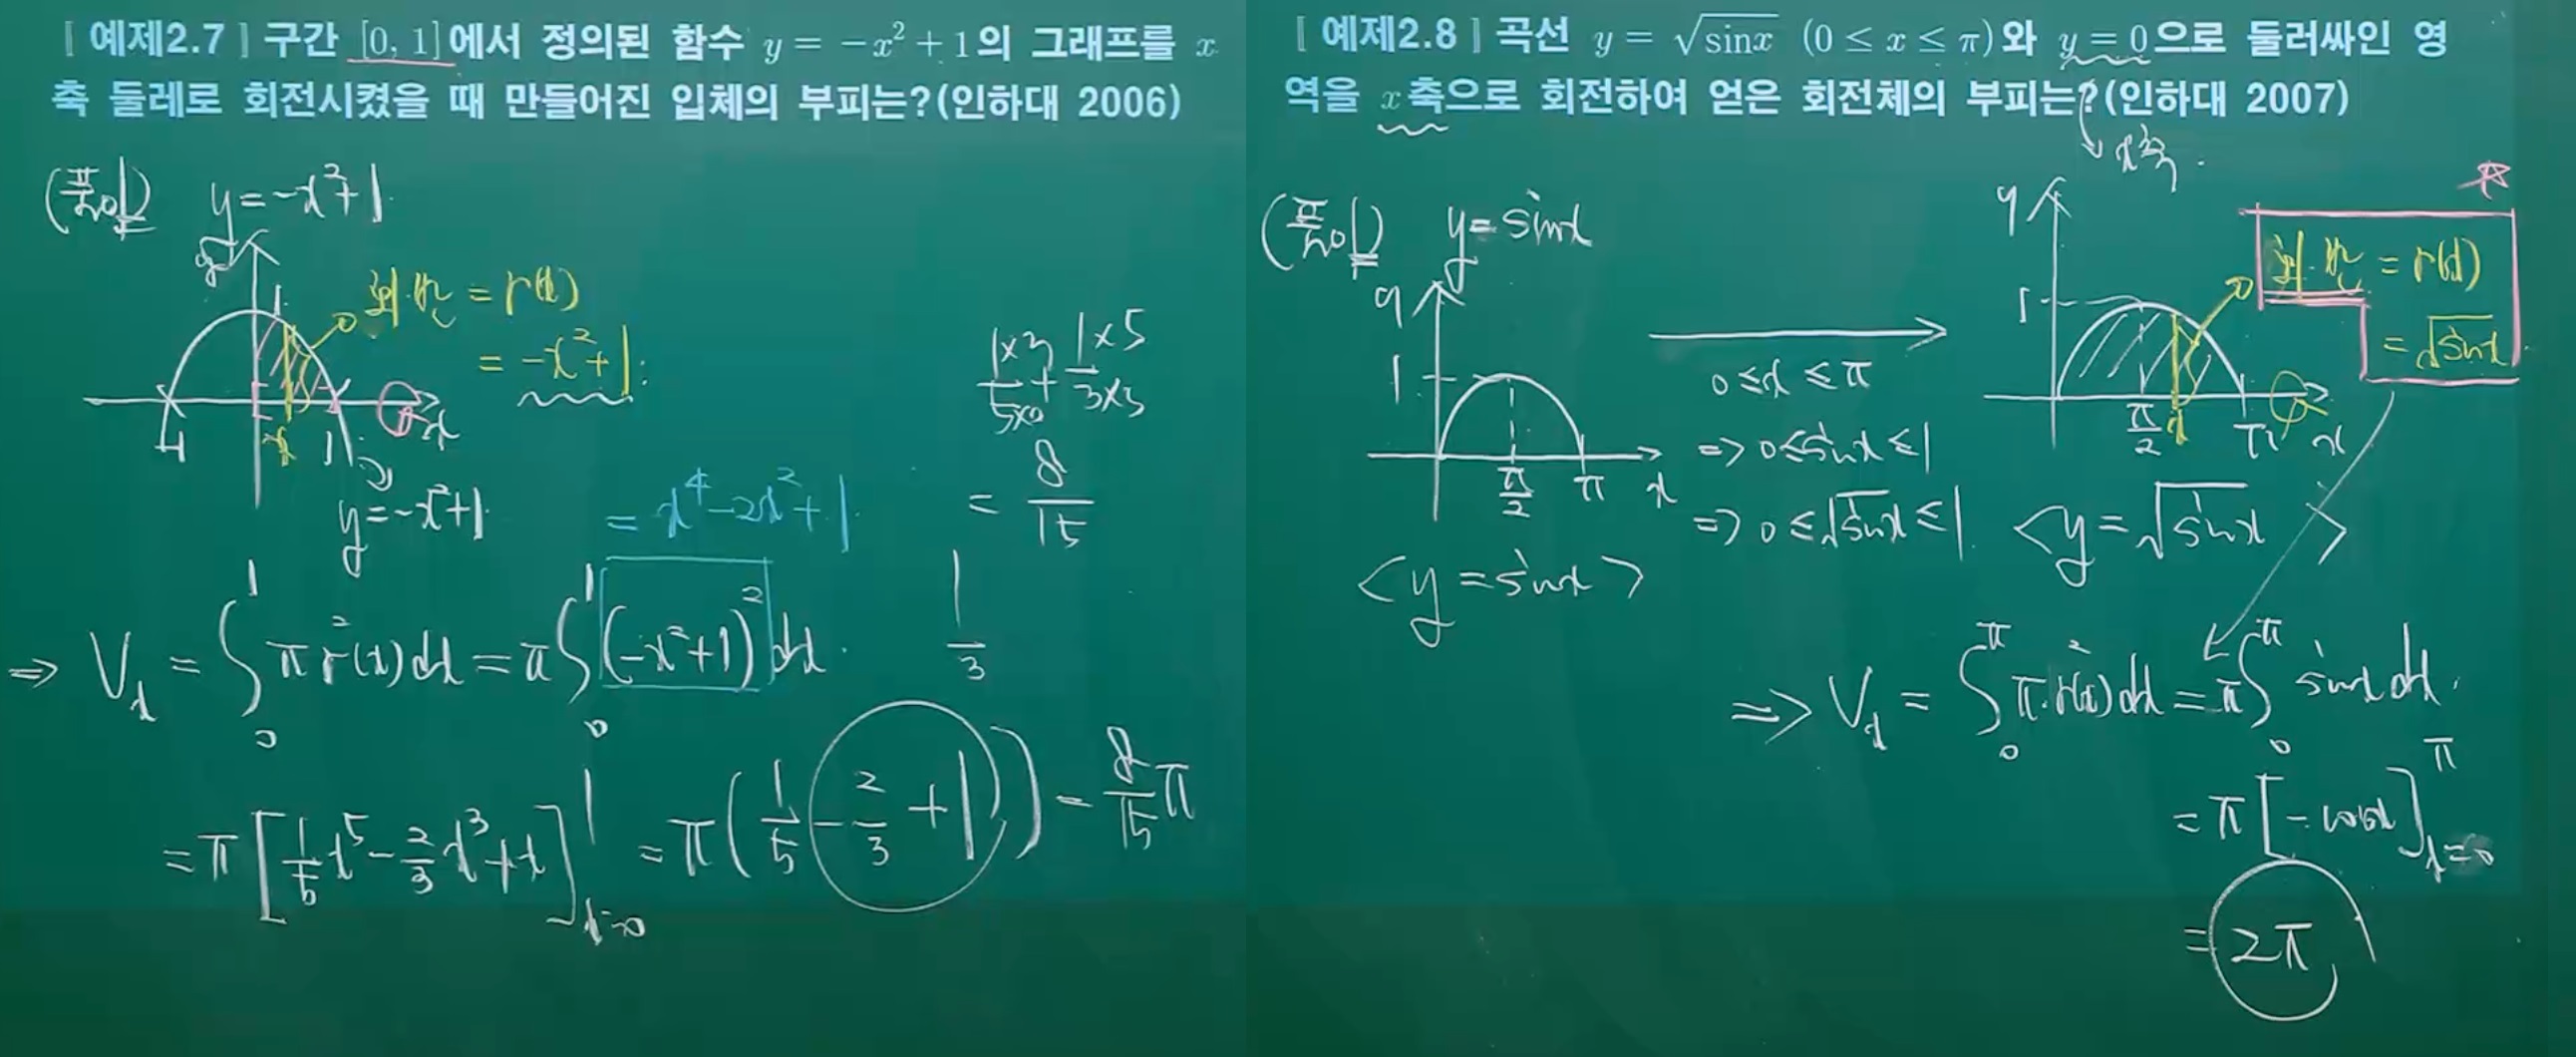 [ 예제2.7 ] 구간 [0, 1]에서 정의된 함수 y = −x² + 1의 그래프를 x
축 둘레로 회전시켰을 때 만들어진 입체의 부피는?(인하대 2006)
(풀이) y = -x²+1
y
1
= r(x)
= -x²+1
-1 1 x
y = -x²+1
1×3/5×3 + 1×5/3×5
= 8/15
1/3
= x⁴-2x²+1
⇒ Vx = ∫₀¹ πr²(x)dx = π∫₀¹ (-x²+1)² dx
= π[1/5 x⁵ - 2/3 x³ + x]¹ₓ₌₀ = π(1/5 - 2/3 + 1) = 8/15 π
[ 예제2.8 ] 곡선 y = √sinx (0 ≤ x ≤ π)와 y = 0으로 둘러싸인 영
역을 x축으로 회전하여 얻은 회전체의 부피는?(인하대 2007)
x축
(풀이) y = sinx
y
1
π/2 π x
<y = sinx>
0 ≤ x ≤ π
⇒ 0 ≤ sinx ≤ 1
⇒ 0 ≤ √sinx ≤ 1
y
1
π/2 x π x
<y = √sinx>
= r(x)
= √sinx
⇒ Vx = ∫₀^π π·r²(x)dx = π∫₀^π sinx dx
= π[-cosx]^πₓ₌₀
= 2π